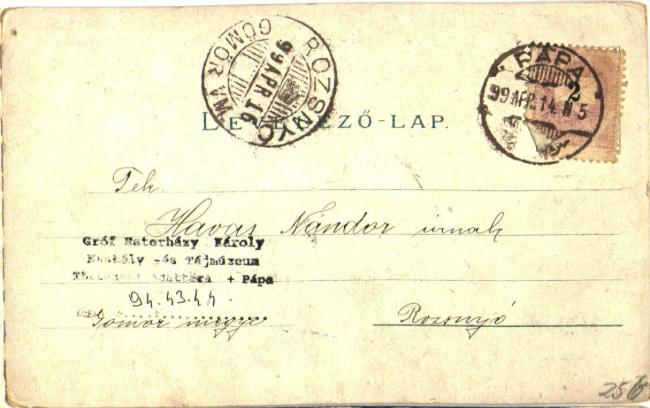 ROZSNYÓ
GÖMÖR VM
99 APR 16
PÁPA
99 APR. 14
2
LEVELEZŐ-LAP.
Tek.
Havas Nándor úrnak
Gróf Esterházy Károly
Kastély- és Tájmúzeum
+ Pápa
94.43.44.
Gömör megye
Rozsnyó